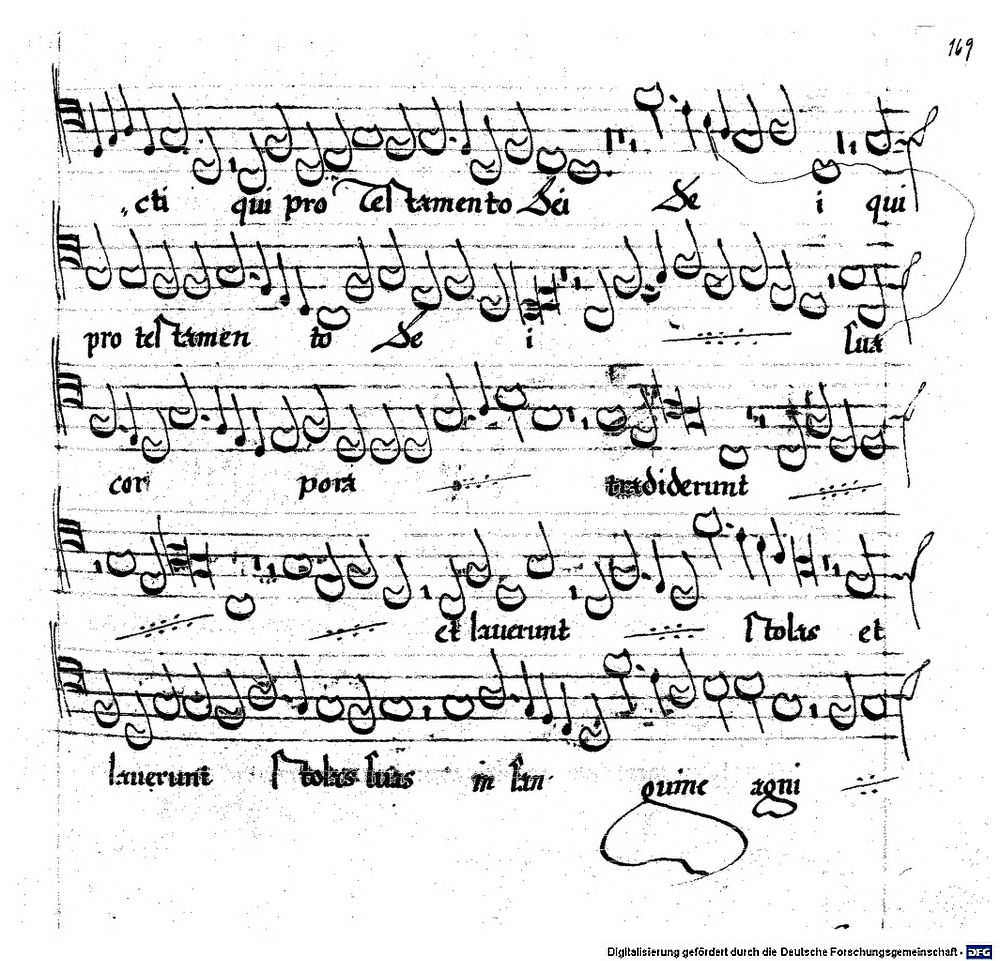 169
cti qui pro testamento Dei De i qui
pro testamen to De i sua
cor pora tradiderunt
et lauerunt stolas et
lauerunt stolas suas in san guine agni
Digitalisierung gefördert durch die Deutsche Forschungsgemeinschaft - DFG